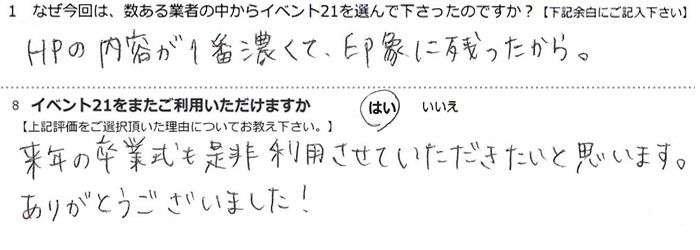 1 なぜ今回は、数ある業者の中からイベント21を選んで下さったのですか？【下記余白にご記入下さい】
HPの内容が1番濃くて、印象に残ったから。
8 イベント21をまたご利用いただけますか はい いいえ
【上記評価をご選択頂いた理由についてお教え下さい。】
来年の卒業式も是非利用させていただきたいと思います。
ありがとうございました！